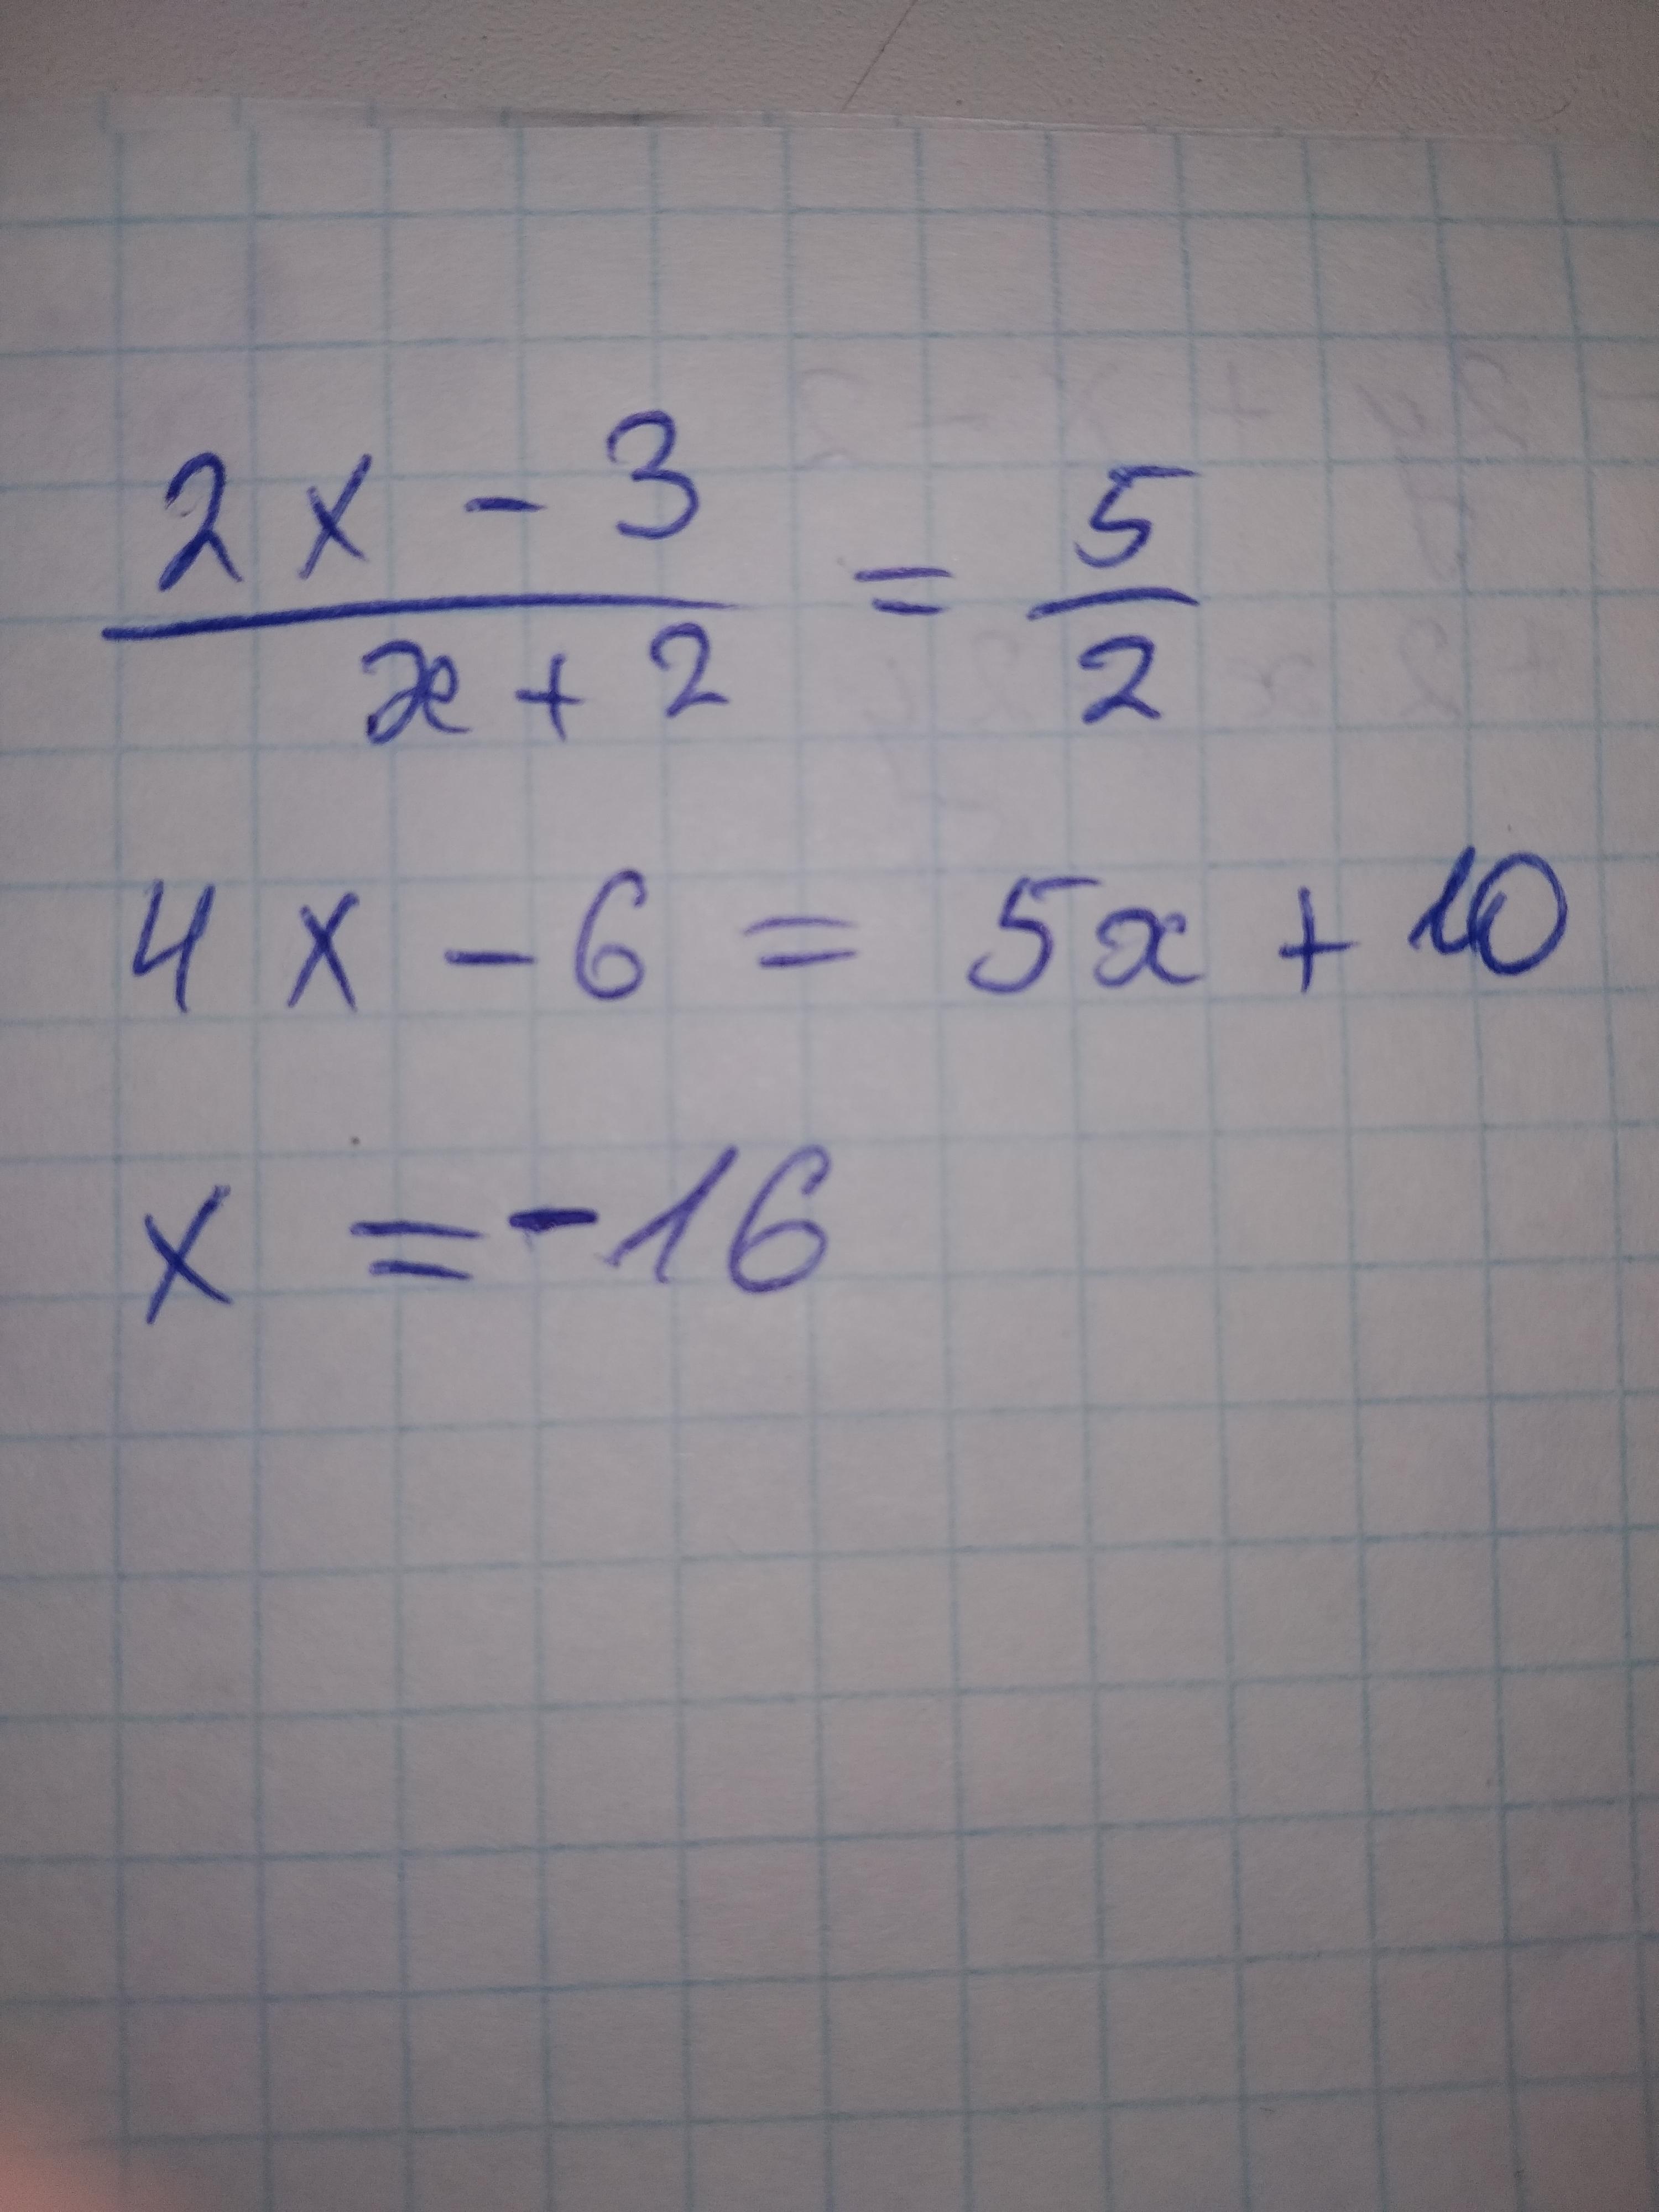 2x - 3 / x + 2 = 5 / 2
4x - 6 = 5x + 10
x = -16